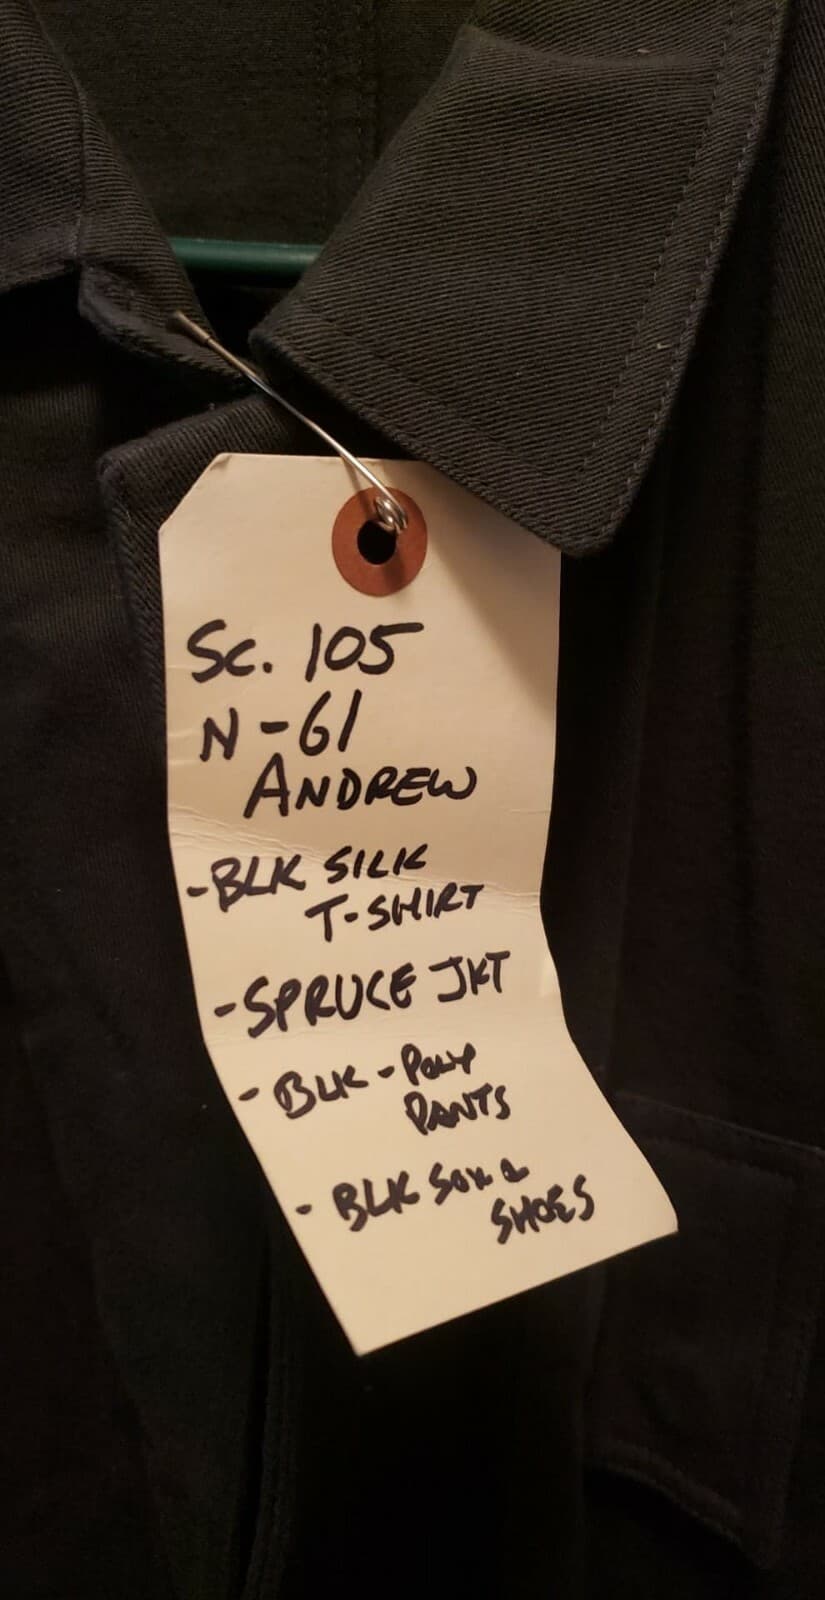 Sc. 105
N-61
ANDREW
-BLK SILK
T-SHIRT
-SPRUCE JKT
- BLK - POLY
PANTS
- BLK SOX &
SHOES